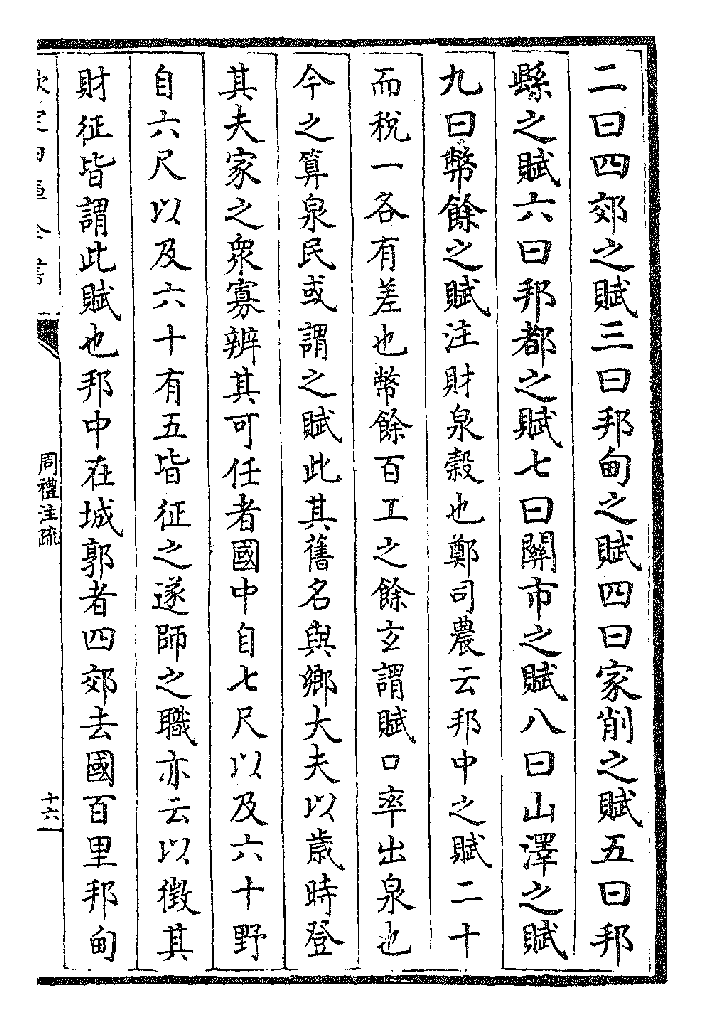 二曰四郊之賦三曰邦甸之賦四曰家削之賦五曰邦
縣之賦六曰邦都之賦七曰關市之賦八曰山澤之賦
九曰幣餘之賦注財泉穀也鄭司農云邦中之賦二十
而稅一各有差也幣餘百工之餘玄謂賦口率出泉也
今之算泉民或謂之賦此其舊名與鄉大夫以歲時登
其夫家之衆寡辨其可任者國中自七尺以及六十野
自六尺以及六十有五皆征之遂師之職亦云以徵其
財征皆謂此賦也邦中在城郭者四郊去國百里邦甸
欽定四庫全書
周禮注疏
十六